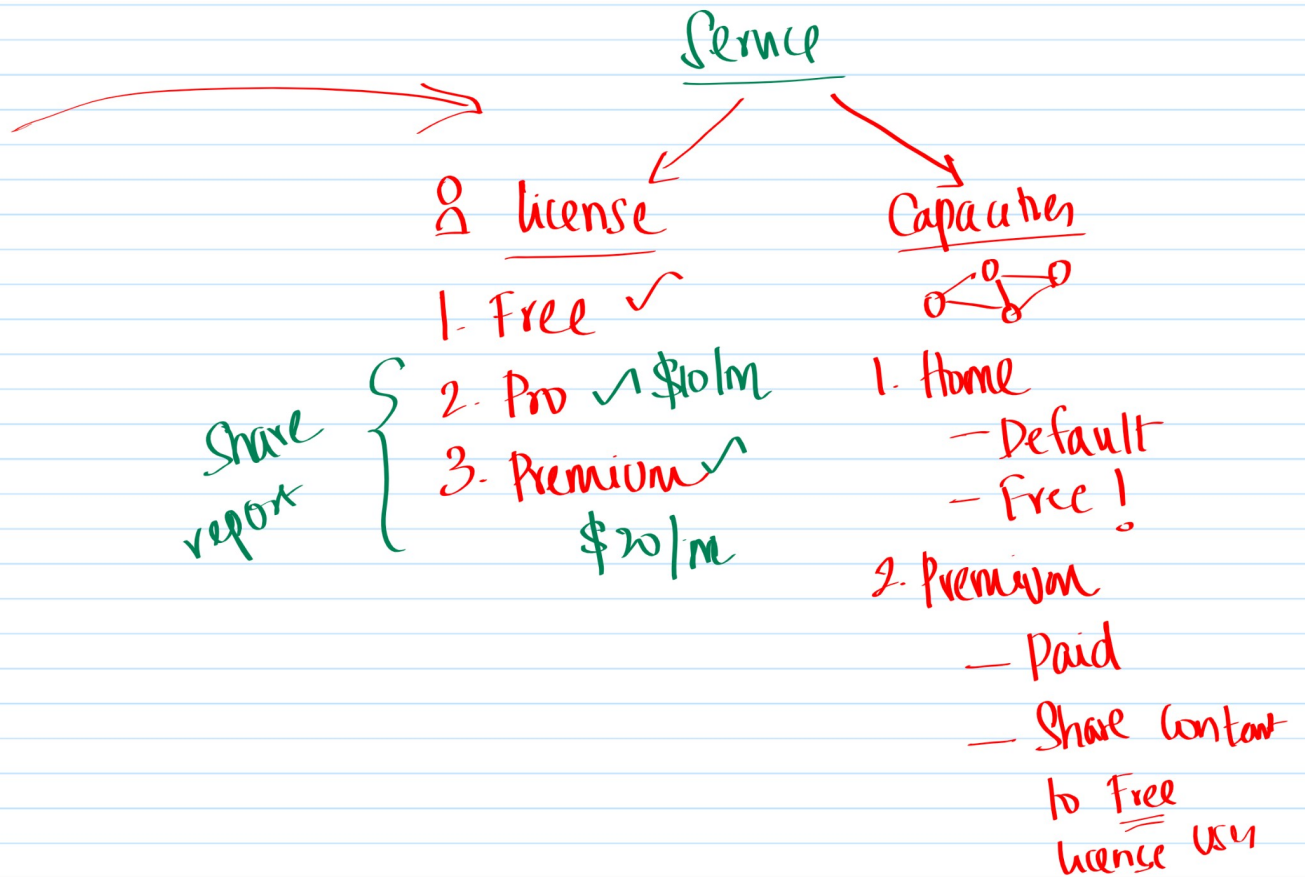 Service
license
1. Free ✓
2. Pro ✓ $10/m
3. Premium ✓
$20/m
Share
report
Capacities
1. Home
- Default
- Free!
2. Premium
- Paid
- Share Content
to Free
license user